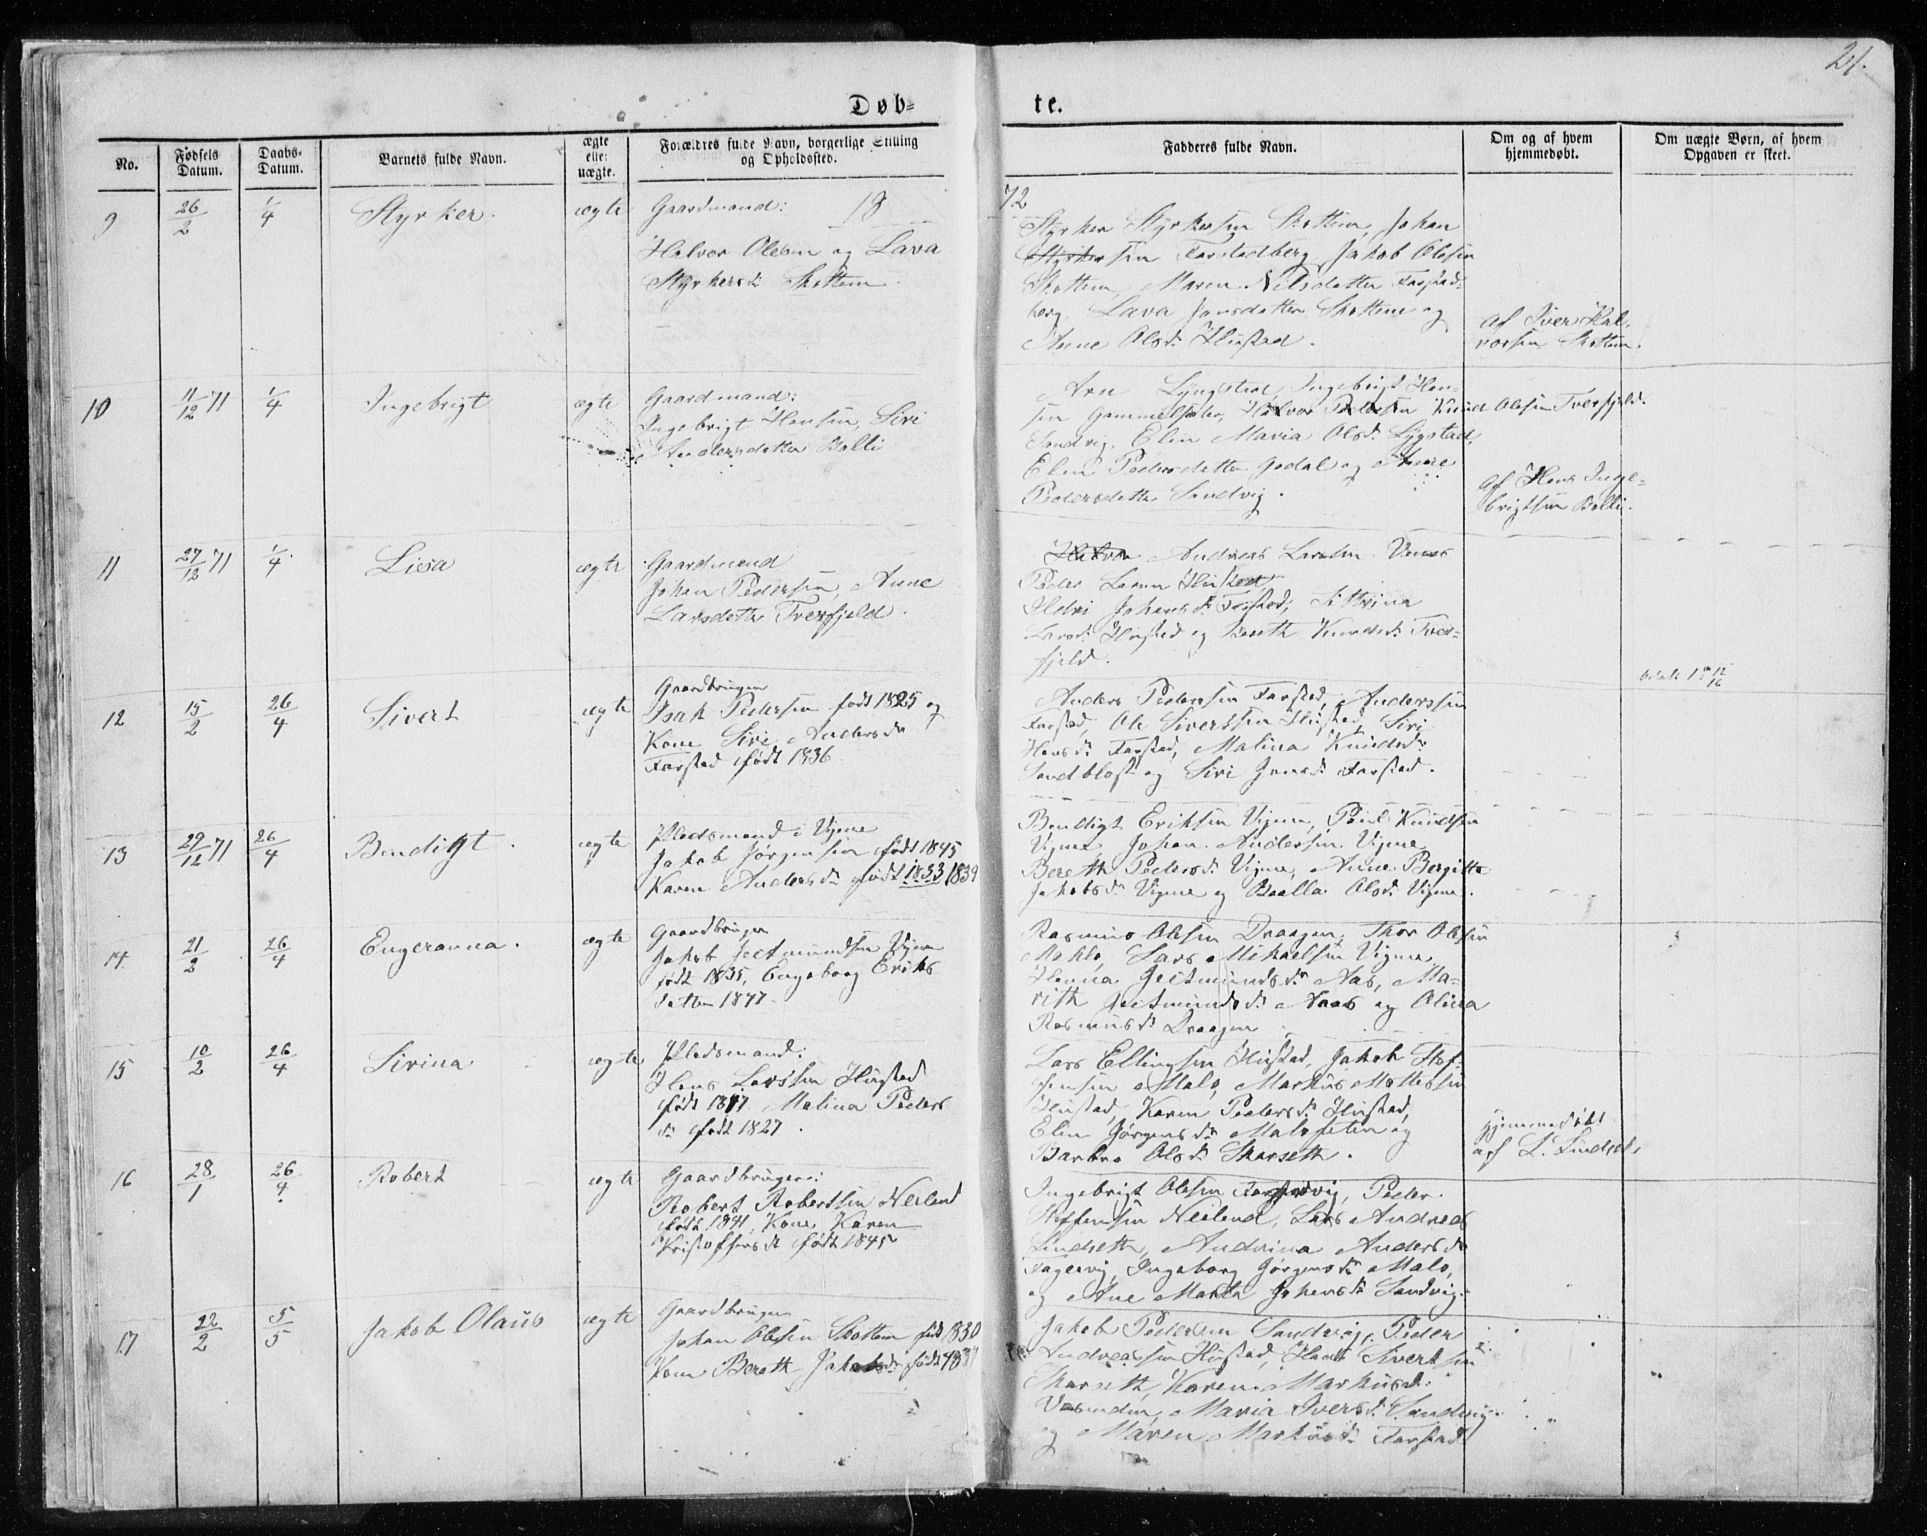 21.
Døb-
te.
No.
Fødsels Datum.
Daabs-Datum.
Barnets fulde Navn.
ægte eller uægte.
Forældres fulde Navn, borgerlige Stilling og Opholdssted.
Fadderes fulde Navn.
Om og af hvem hjemmedøbt.
Om uægte Børn, af hvem Opgaven er skeet.
18
72
9
26/2
1/4
Styrker.
ægte
Gaardmand:
Halvor Olesen og Lava
Styrkersd. Skottem.
Styrker Styrkersen Skottem, Johan
Styrkersen Farstadberg, Jakob Olesen
Skottem, Maren Nilsdatter Farstad-
berg, Lava Jensdatter Skottem og
Anne Olsd. Hustad.
af Iver Hal-
vorsen Skottem.
10
11/12 71
1/4
Ingebrigt
ægte
Gaardmand:
Ingebrigt Hansen, Siri
Andersdatter Bolli
Arn Lyngstad, Ingebrigt Han-
sen Gammelsæter, Halvor Pedersen Knud Olesen Tverfjeld.
Sandvig, Elen Maria Olsd. Lygstad,
Elen Pedersdatter Godal og Anne
Pedersdatter Sandvig.
af Hans Inge-
brigtsen Bolli.
11
27/12 71
1/4
Lisa
ægte
Gaardmand
Johan Pedersen, Anne
Larsdatter Tverfjeld.
Halvor Andreas Larsen
Peder Larsen Hustad,
Ildri Johansd. Farstad, Kathrina
Larsd. Hustad og Bereth Knudsd. Tver-
fjeld.
12
15/2
26/4
Sivert
ægte
Gaardbruger
Isak Pedersen født 1825 og
Kone Siri Andersdr
Farstad født 1836.
Anders Pedersen Farstad, Anderssen
Farstad, Ole Sivertsen Hustad, Siri
Hansdr Farstad, Malina Knudsdr
Sandblost og Siri Jensdr Farstad.
13
29/12 71
26/4
Bendigt.
ægte
Pladsmand i Viune
Jakob Jørgensen født 1845
Karen Andersdr født 1833 1839
Bendigt Eriksen Viune, Poul Knudsen
Viune Johan Andersen Viune
Bereth Pedersdr Viune, Anne Bergitte
Jakobsdr Viune og Olsdr Viune.
14.
21/2
26/4
Engeranna.
ægte
Gaardbruger
Jakob Jetmundsen Viune
født 1835, Engeborg Eriks
datter 1847.
Rasmus Olesen Draagen, Thor Olesen
Lars Mikaelsen Viune,
Hanna Jetmundsdr Aas, Ma-
rith Jetmundsdr Aaas og Olina
Rasmusdr Draagen
15
10/2
26/4
Sirina
ægte
Pladsmand:
Hans Larssen Hustad
født 1817. Malina Peders
dr født 1827.
Lars Ellingsen Hustad, Jakob Stef-
fensen Malo, Markus Mattessen
Hustad, Karen Pedersdr Hustad,
Elen Jørgensdr Malosæteren og
Barbro Olsdr Skarseth.
hjemmedøbt
af L. Lindset.
16
28/1
26/4
Robert
ægte
Gaardbruger:
Robert Robertsen Neiland
født 1841, Kone Karen
Kristoffersdr født 1845
Ingebrigt Olesen Peder
Steffensen Neiland, Lars Andreas
Lindseth, Andrina Andersdr
Fagervig, Ingeborg Jørgensdr Malo,
og Ane Marta Johansdr Sandvig.
17
22/2
5/5
Jakob Olaus
ægte
Gaardbruger
Johan Olesen Skottem født 1830
Kone Bereth Jakobsdr født
Jakob Pedersen Sandvig, Peder
Andreassen Hustad, Hans Sivertsen
Skarseth, Karen Markusd.
Maria Iversdr Sandvig
og Maren Markusdr Farstad